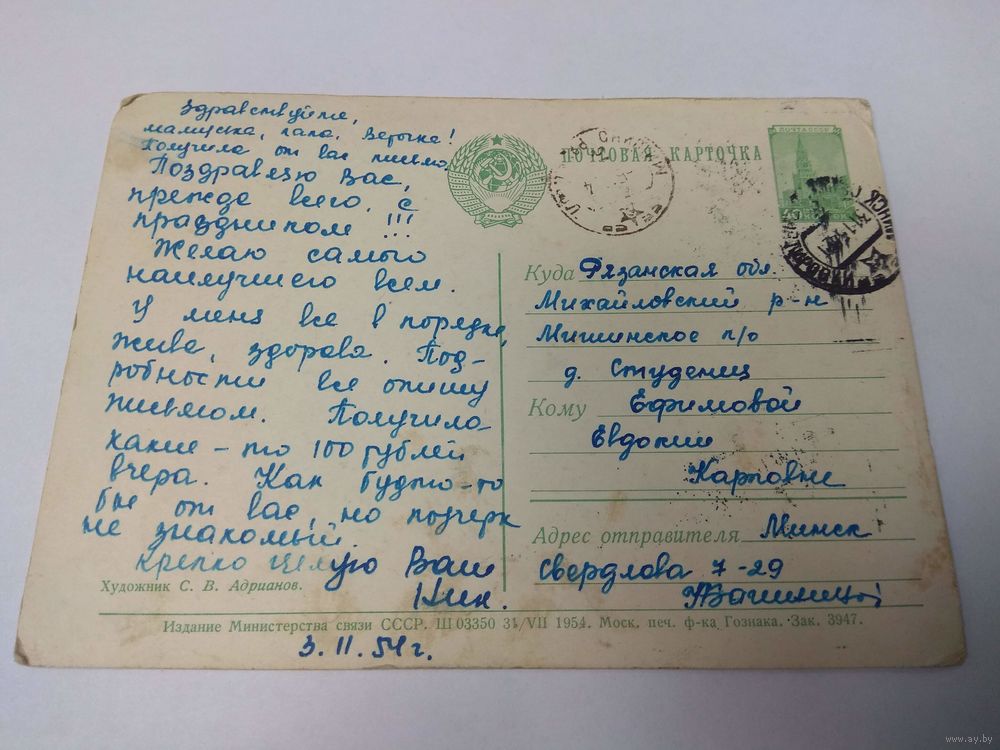 Здравствуйте,
мамуська, папа, Верочка!
Получила от вас письмо.
Поздравляю Вас,
прежде всего, с
праздником !!!
Желаю самого
наилучшего всем.
У меня все в порядке,
жива, здорова. Под-
робности все опишу
письмом. Получила
какие-то 100 рублей
вчера. Как будто-то
бы от вас, но подчерк
не знакомый.
Крепко целую Ваш
Художник С. В. Адрианов.
3.11.54 г.
ПОЧТОВАЯ КАРТОЧКА
ПОЧТА СССР
40
МИНСК
Куда Рязанская обл.
Михайловский р-н
Мишинское п/о
д. Студенец
Кому Ефимовой
Евдокии
Карповне
Адрес отправителя Минск
Свердлова 7-29
Издание Министерства связи СССР. Ш 03350 31/VII 1954. Моск. печ. ф-ка Гознака. Зак. 3947.
www.ay.by